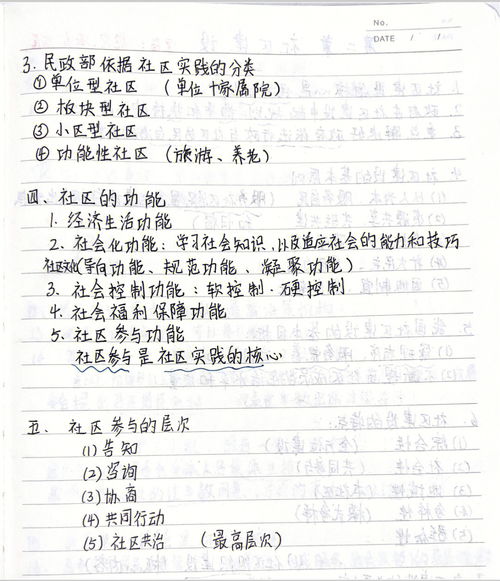 No.
DATE / /
3. 民政部依据社区实践的分类
①单位型社区 (单位+家属院)
② 板块型社区
③ 小区型社区
④ 功能性社区 (旅游、养老)
四、社区的功能
1. 经济生活功能
2. 社会化功能：学习社会知识，以及适应社会的能力和技巧
社区文化(导向功能、规范功能、凝聚功能)
3. 社会控制功能：软控制·硬控制
4. 社会福利保障功能
5. 社区参与功能
社区参与是社区实践的核心
五、社区参与的层次
(1) 告知
(2) 咨询
(3) 协商
(4) 共同行动
(5) 社区共治 (最高层次)